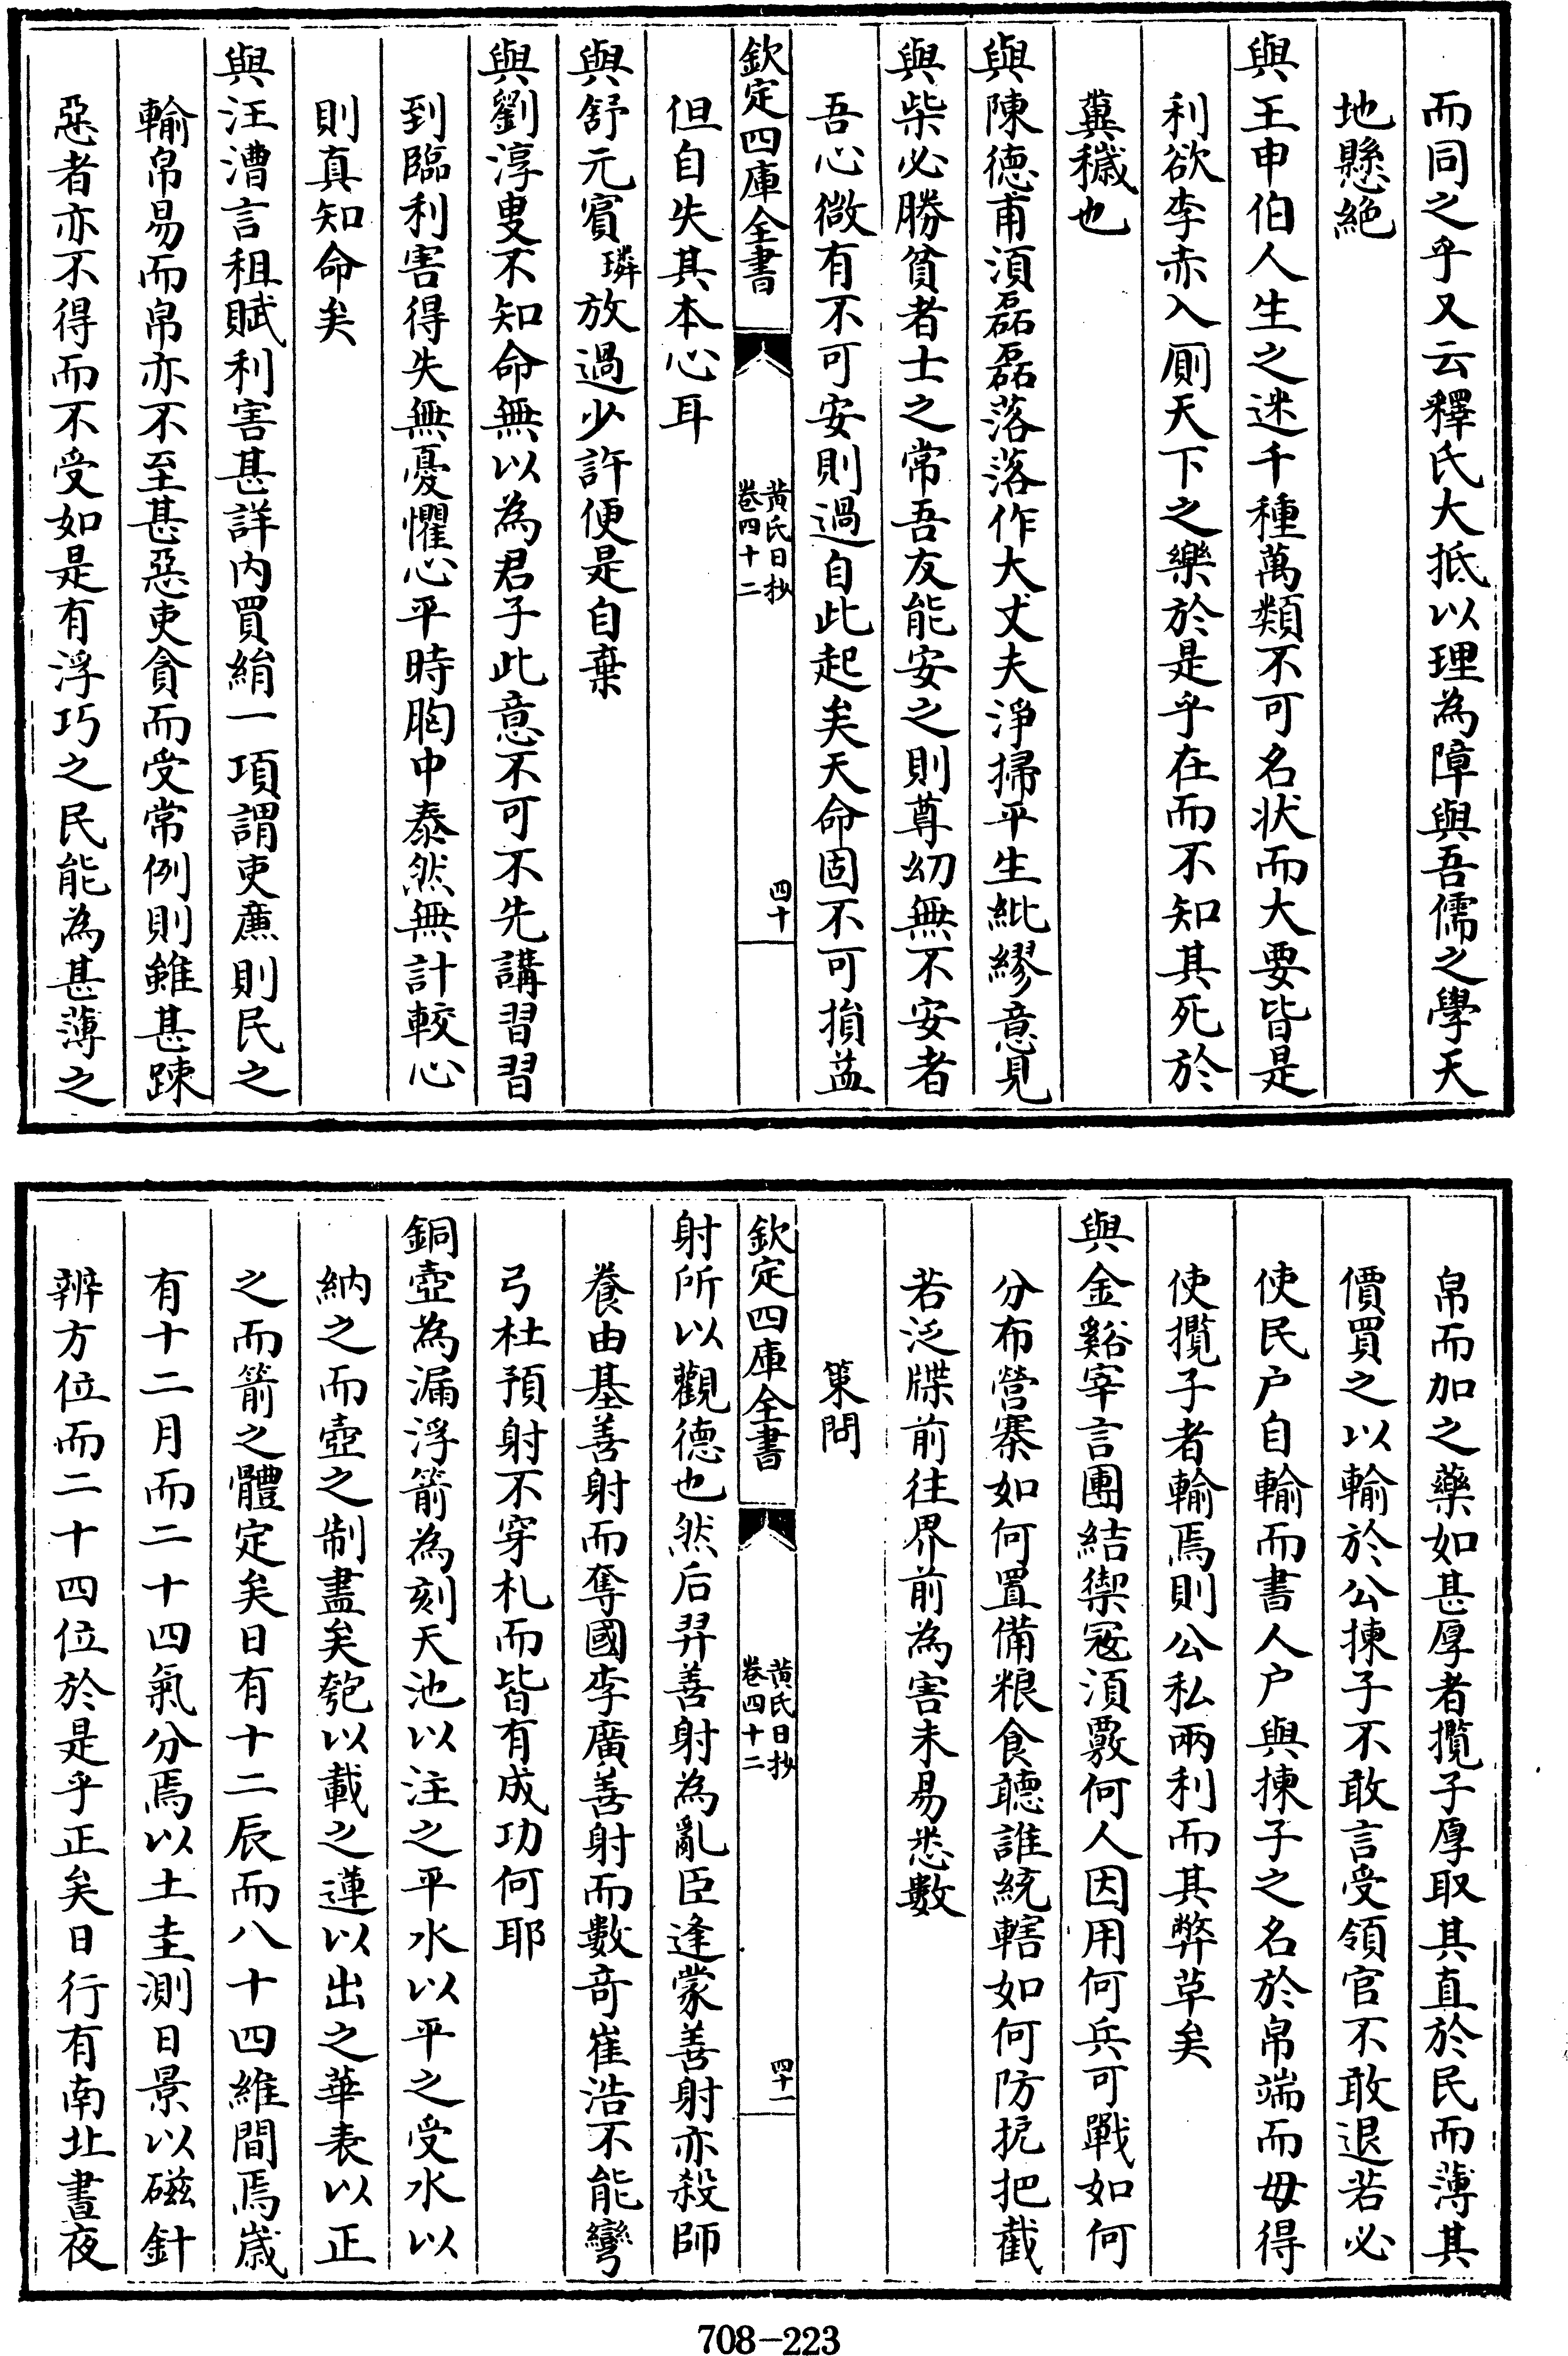 而同之乎又云釋氏大抵以理為障與吾儒之學天
地懸絕
與王申伯人生之迷千種萬類不可名狀而大要皆是
利欲李赤入厠天下之樂於是乎在而不知其死於
糞穢也
與陳德甫湏磊磊落落作大丈夫淨掃平生紕繆意見
與柴必勝貧者士之常吾友能安之則尊幼無不安者
吾心微有不可安則過自此起矣天命固不可損益
欽定四庫全書
黃氏日抄
卷四十二
四十
但自失其本心耳
與舒元賓璘放過少許便是自棄
與劉淳叟不知命無以為君子此意不可不先講習習
到臨利害得失無憂懼心平時胸中泰然無計較心
則真知命矣
與汪漕言租賦利害甚詳內買絹一項謂吏廉則民之
輸帛易而帛亦不至甚惡吏貪而受常例則雖甚踈
惡者亦不得而不受如是有浮巧之民能為甚薄之
帛而加之藥如甚厚者攬子厚取其直於民而薄其
價買之以輸於公揀子不敢言受領官不敢退若必
使民戶自輸而書人戶與揀子之名於帛端而毋得
使攬子者輸焉則公私兩利而其弊革矣
與金谿宰言團結禦冦湏覈何人因用何兵可戰如何
分布營寨如何置備粮食聽誰統轄如何防扼把截
若泛牒前往界前為害未易悉數
策問
欽定四庫全書
黃氏日抄
卷四十二
四十一
射所以觀德也然后羿善射為亂臣逄蒙善射亦殺師
養由基善射而奪國李廣善射而數竒崔浩不能彎
弓杜預射不穿札而皆有成功何耶
銅壺為漏浮箭為刻天池以注之平水以平之受水以
納之而壺之制盡矣匏以載之蓮以出之華表以正
之而箭之體定矣日有十二辰而八十四維間焉歲
有十二月而二十四氣分焉以土圭測日景以磁針
辨方位而二十四位於是乎正矣日行有南北晝夜
708-223